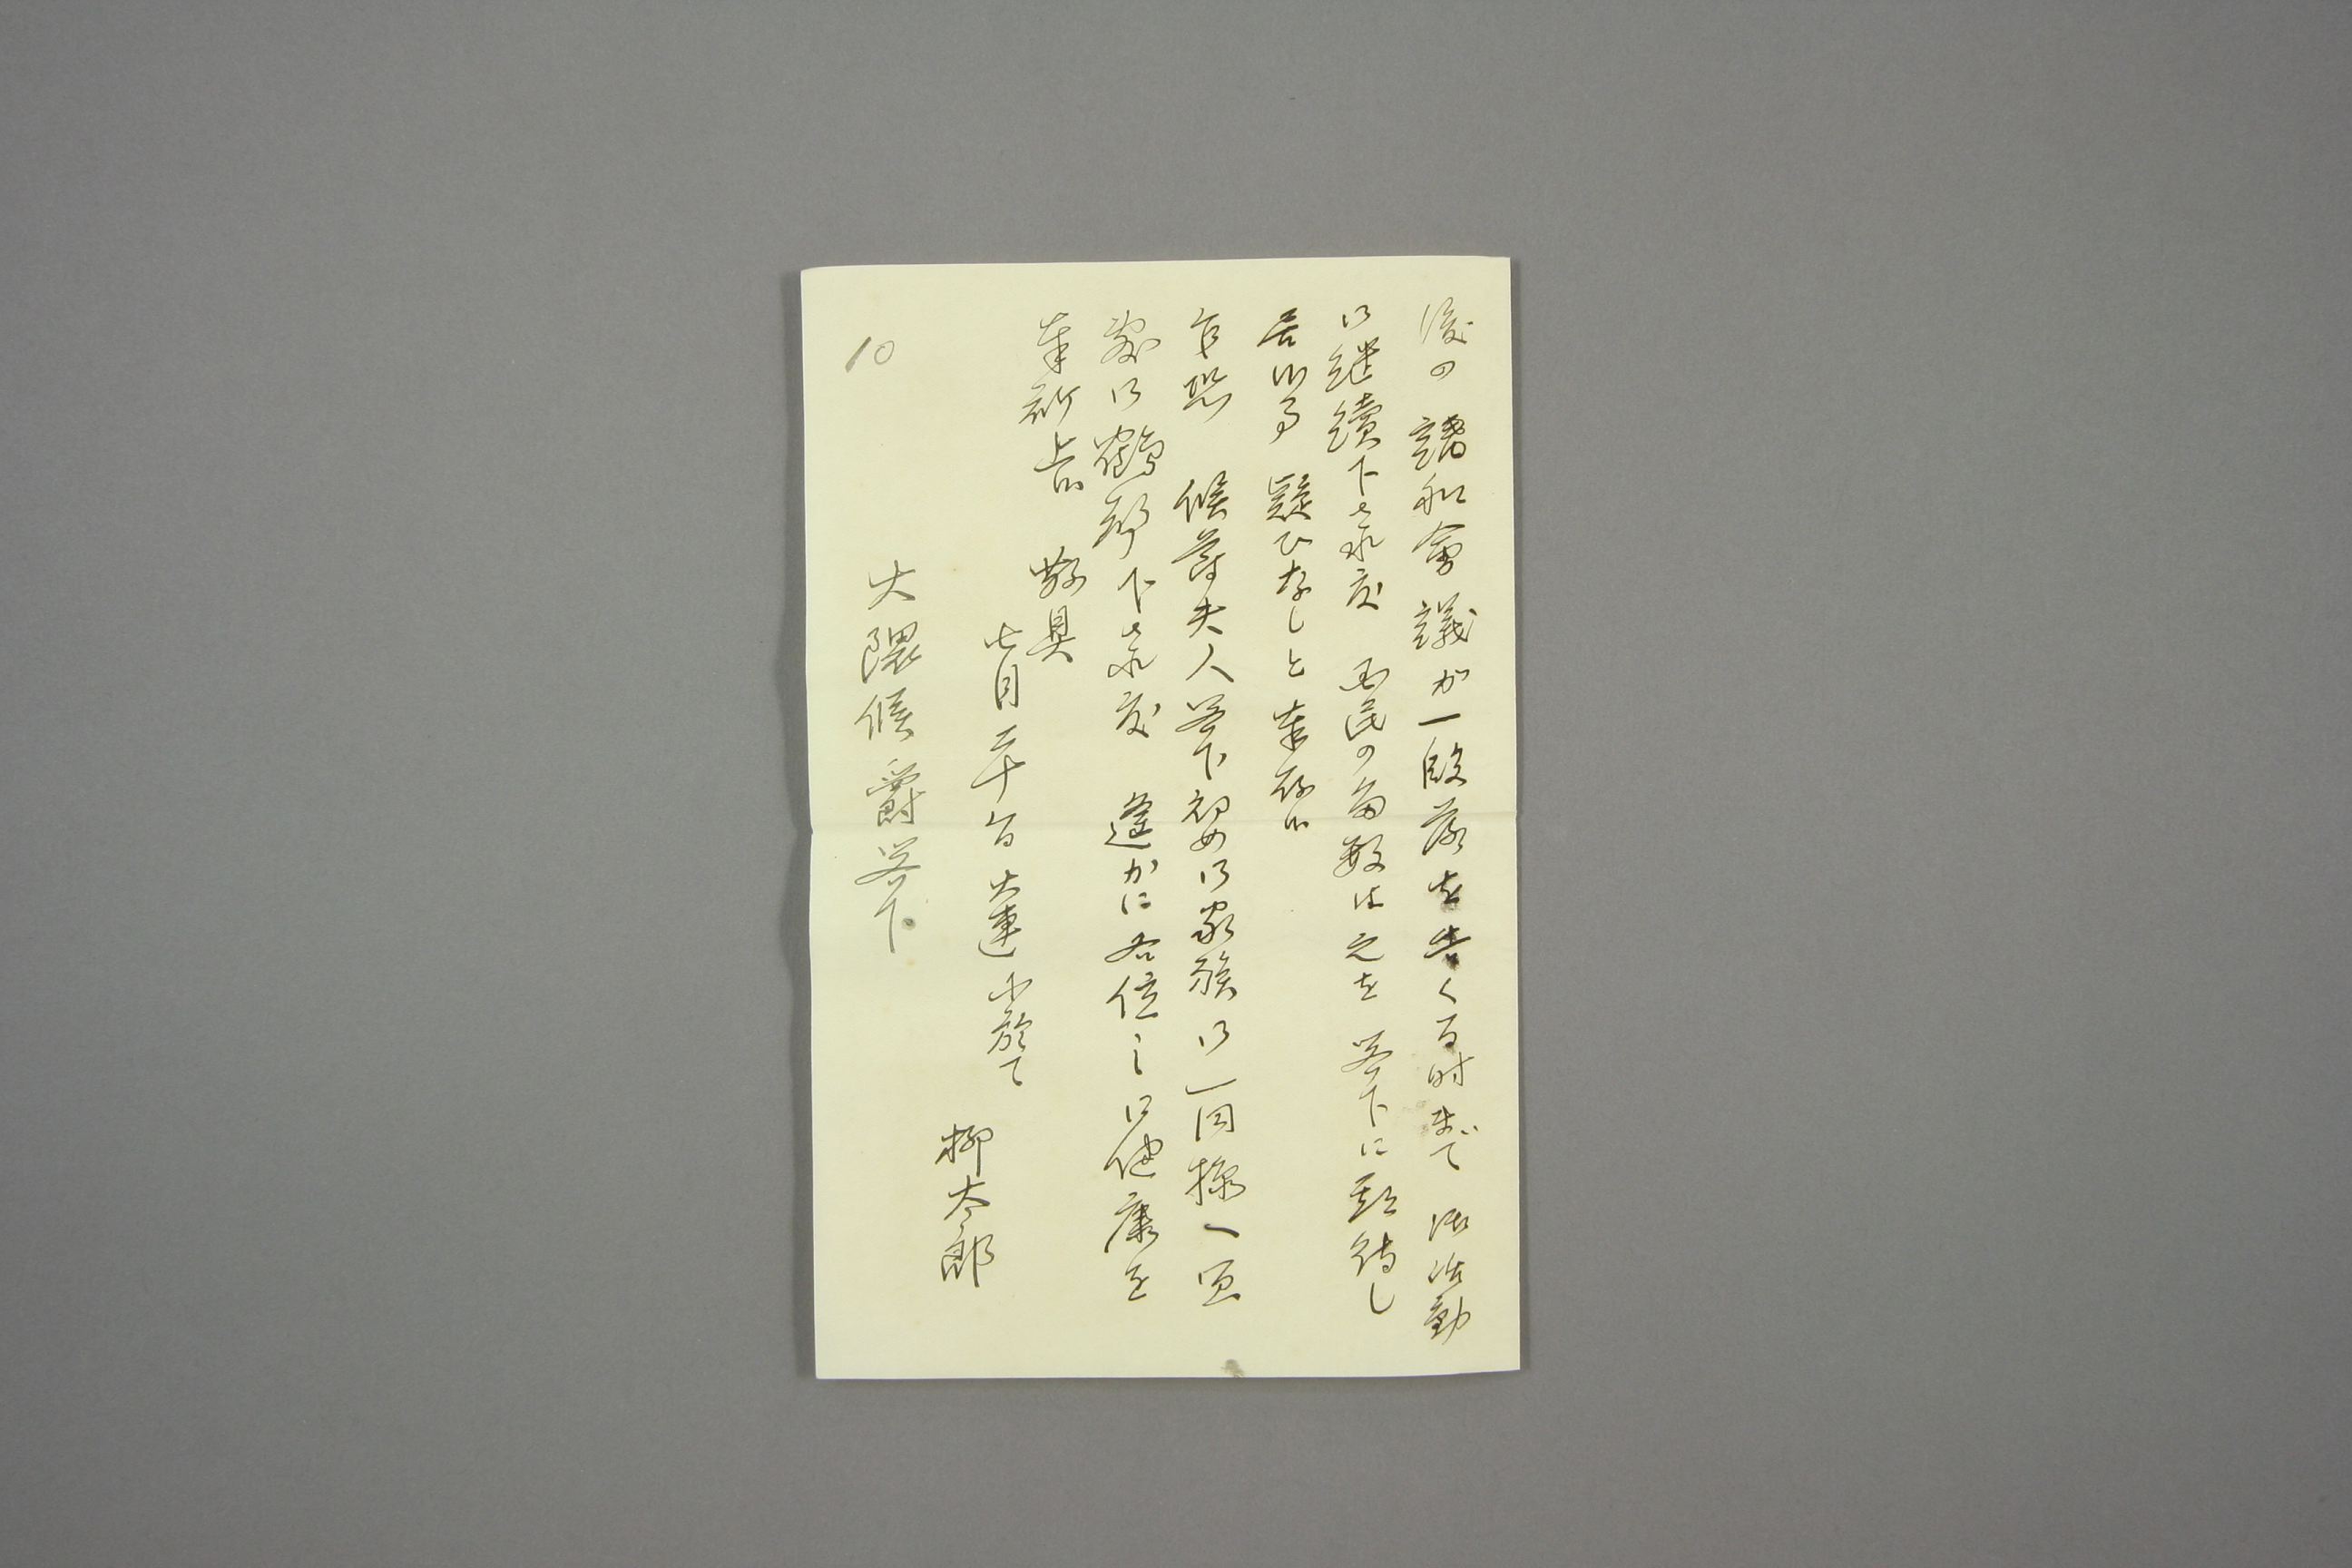 後の講和會議が一段落を告くる時まで御活動
御継續下され度 国民の多数は之を 閣下に期待し
居候事 疑ひなしと奉存候
乍恐 侯爵夫人閣下初め御家族御一同様へ宜
敷御鶴聲下され度 遙かに各位之御健康を
奉祈上候 敬具
七月二十日 大連に於て
柳太郎
大隈侯爵閣下
10